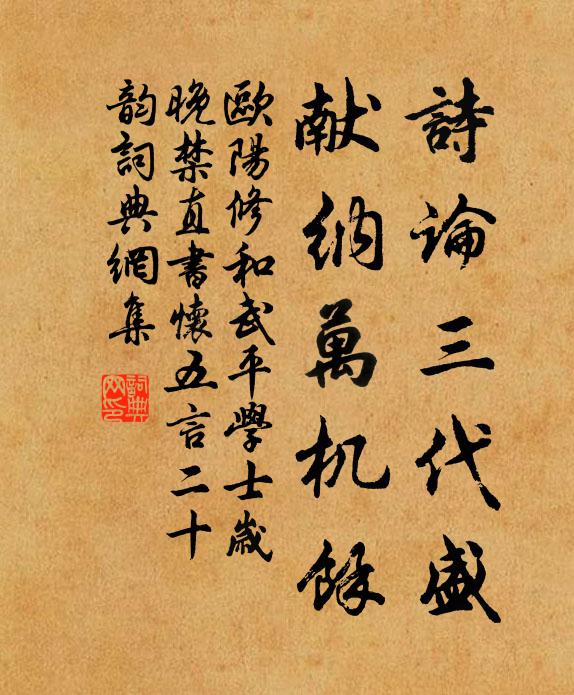 詩論三代盛
献納萬机餘
歐陽修和武平學士歲
晚禁直書懷五言二十
韵詞典網集
詞典
网印